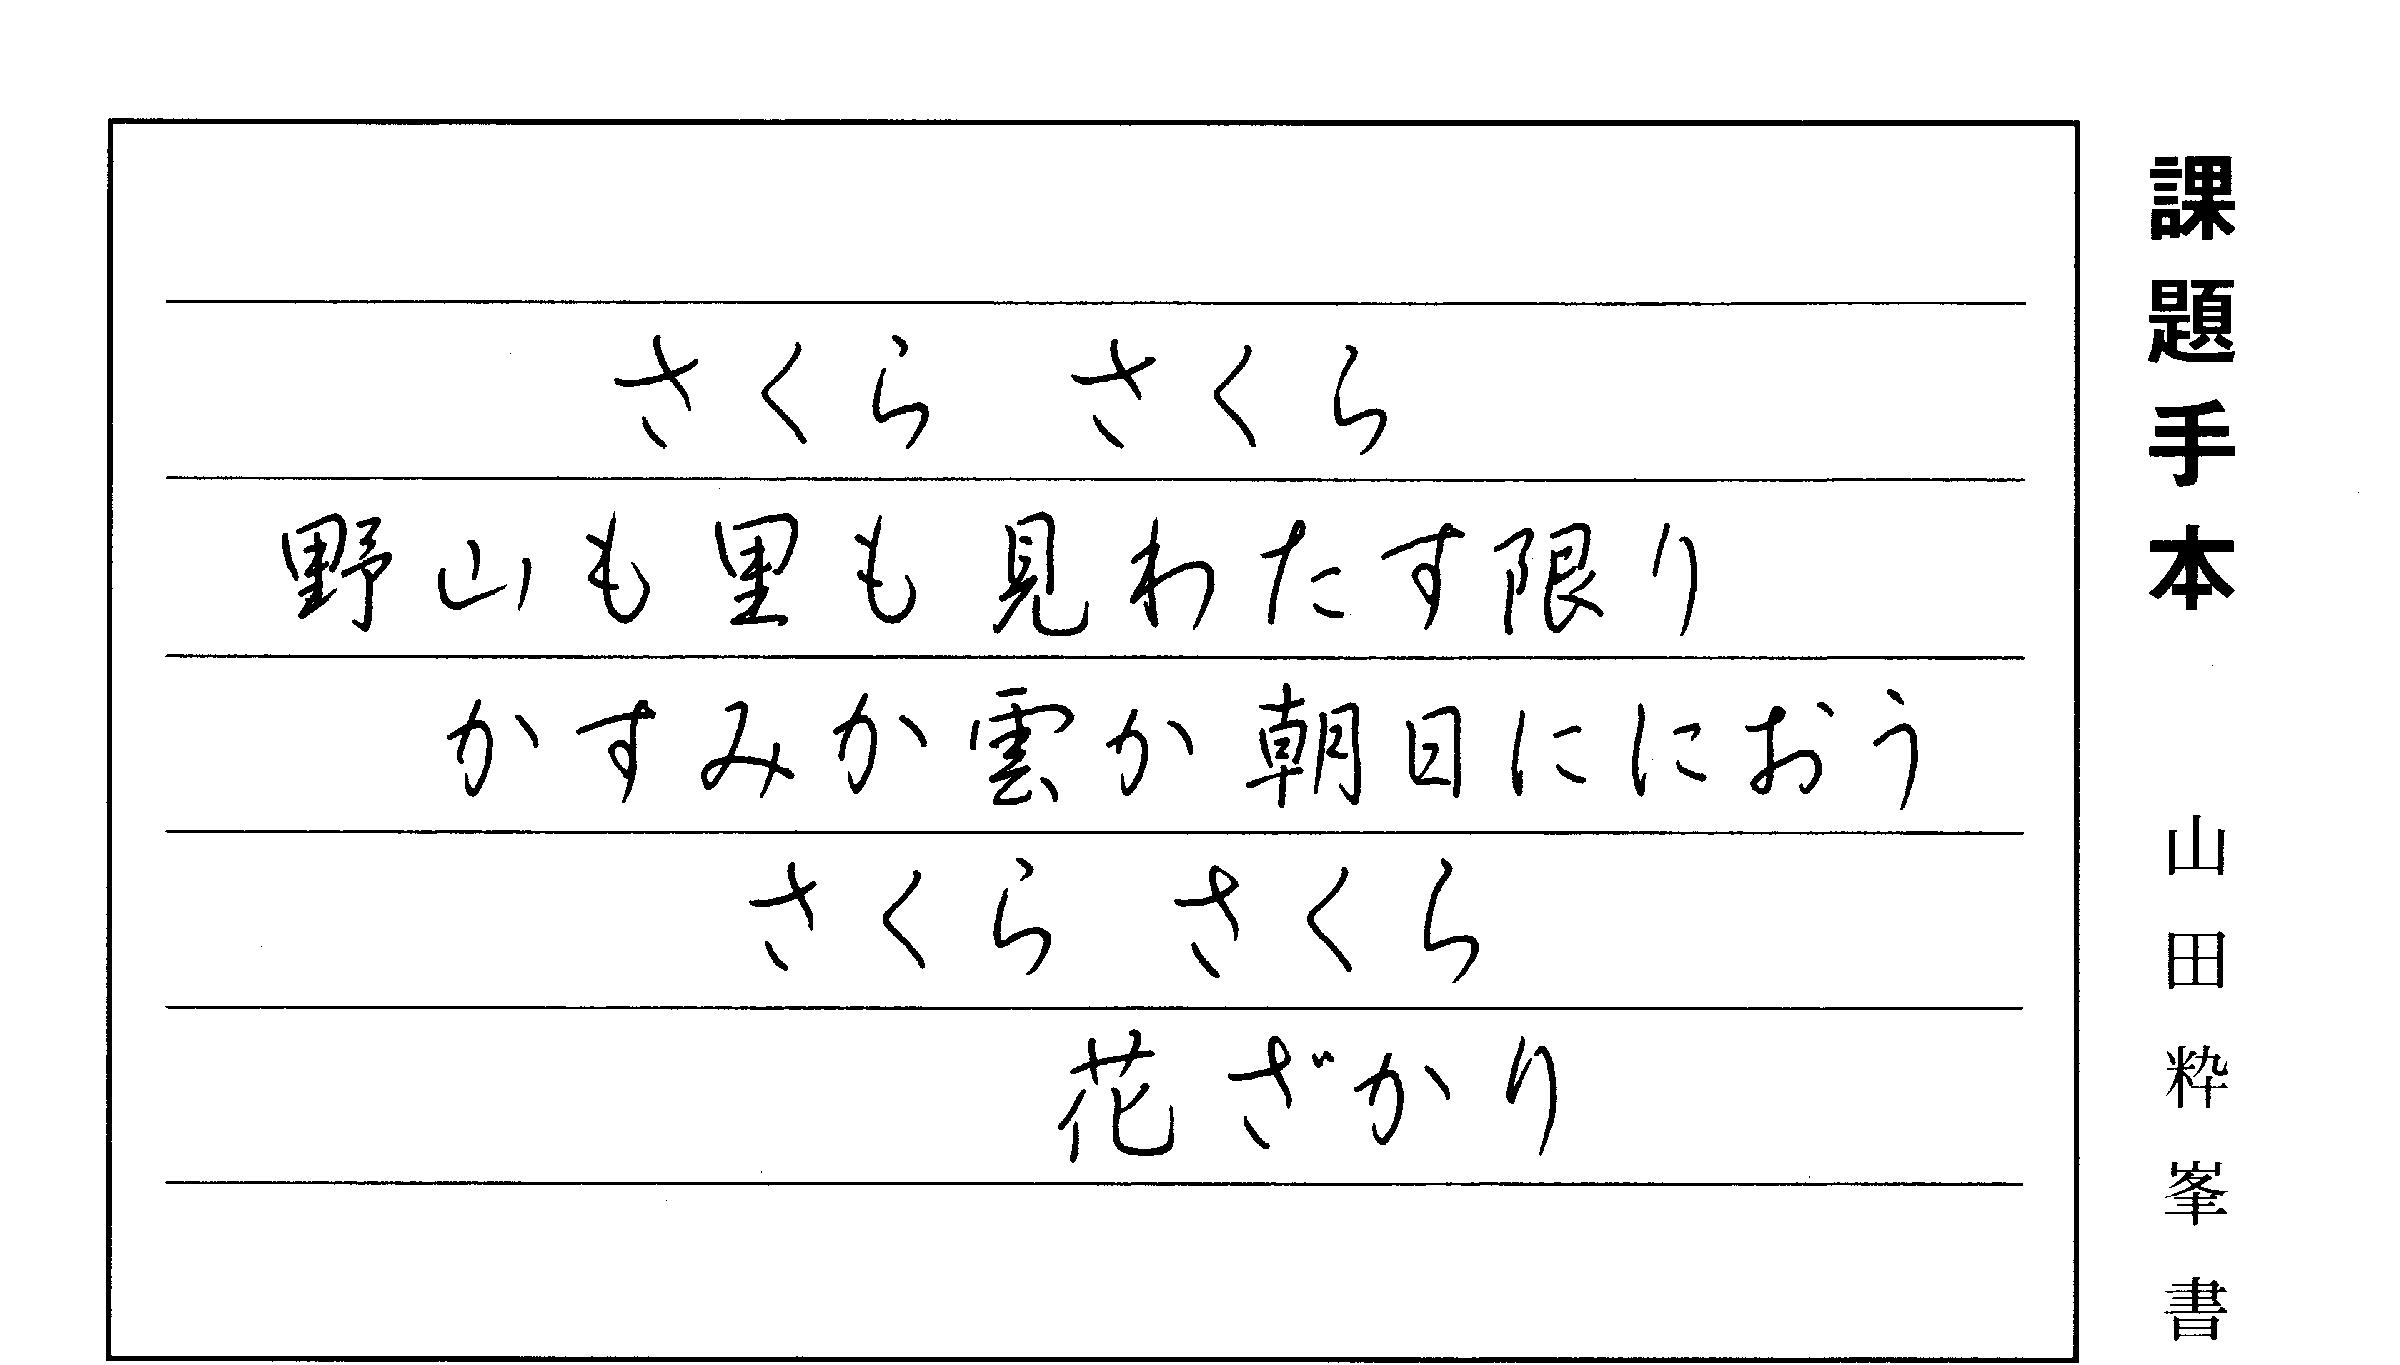 課題手本 山田粋峯書
さくら さくら
野山も里も見わたす限り
かすみか雲か朝日ににおう
さくら さくら
花ざかり